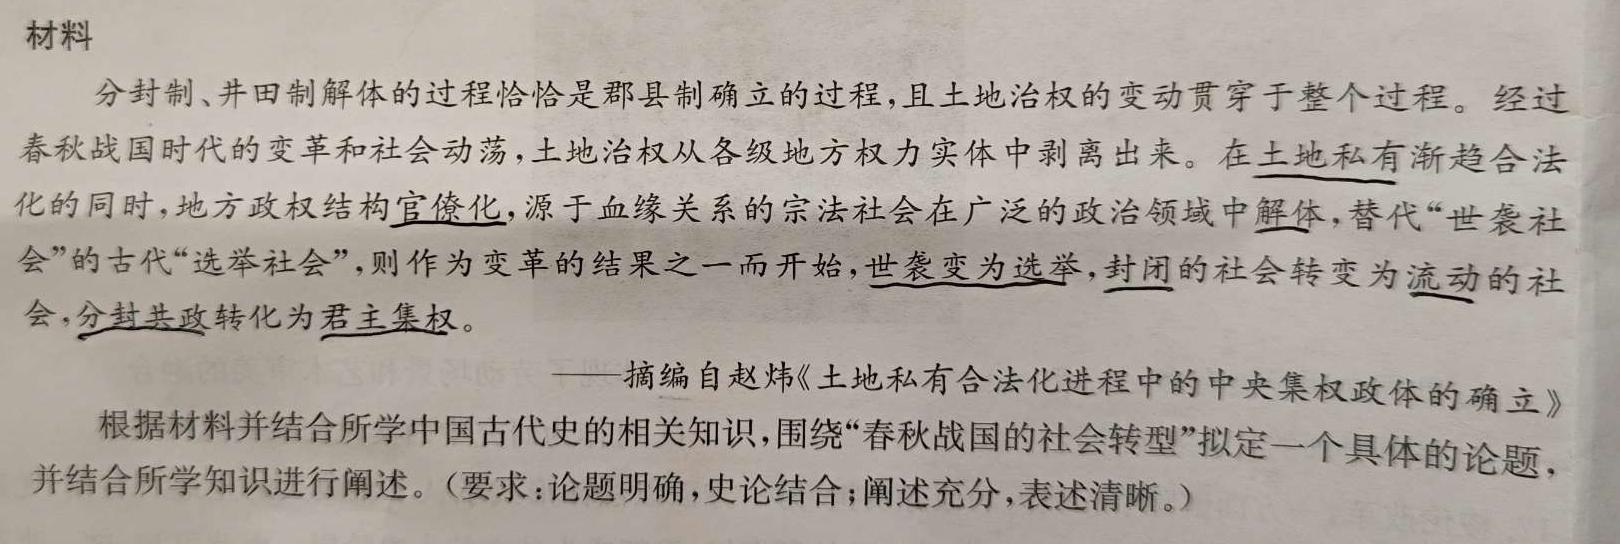 材料
分封制、井田制解体的过程恰恰是郡县制确立的过程,且土地治权的变动贯穿于整个过程。经过
春秋战国时代的变革和社会动荡,土地治权从各级地方权力实体中剥离出来。在土地私有渐趋合法
化的同时,地方政权结构官僚化,源于血缘关系的宗法社会在广泛的政治领域中解体,替代“世袭社
会”的古代“选举社会”,则作为变革的结果之一而开始,世袭变为选举,封闭的社会转变为流动的社
会,分封共政转化为君主集权。
——摘编自赵炜《土地私有合法化进程中的中央集权政体的确立》
根据材料并结合所学中国古代史的相关知识,围绕“春秋战国的社会转型”拟定一个具体的论题,
并结合所学知识进行阐述。(要求:论题明确,史论结合;阐述充分,表述清晰。)